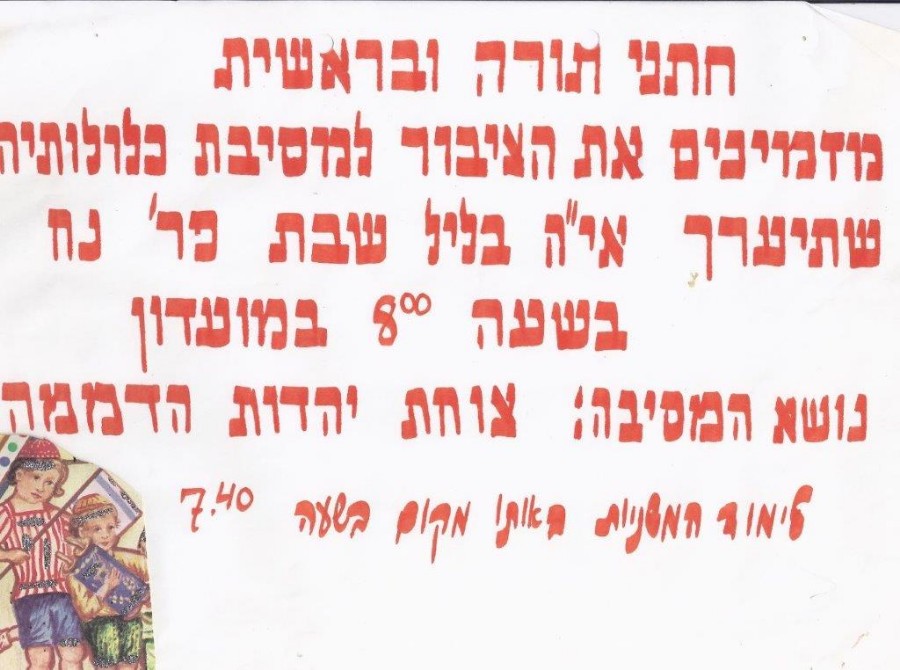 חתני תורה ובראשית
מזמינים את הציבור למסיבת כלולותיה
שתיערך אי"ה בליל שבת פר' נח
בשעה 8⁰⁰ במועדון
נושא המסיבה: צוחת יהדות הדממה
לימוד המשניות באותו מקום בשעה 7.40